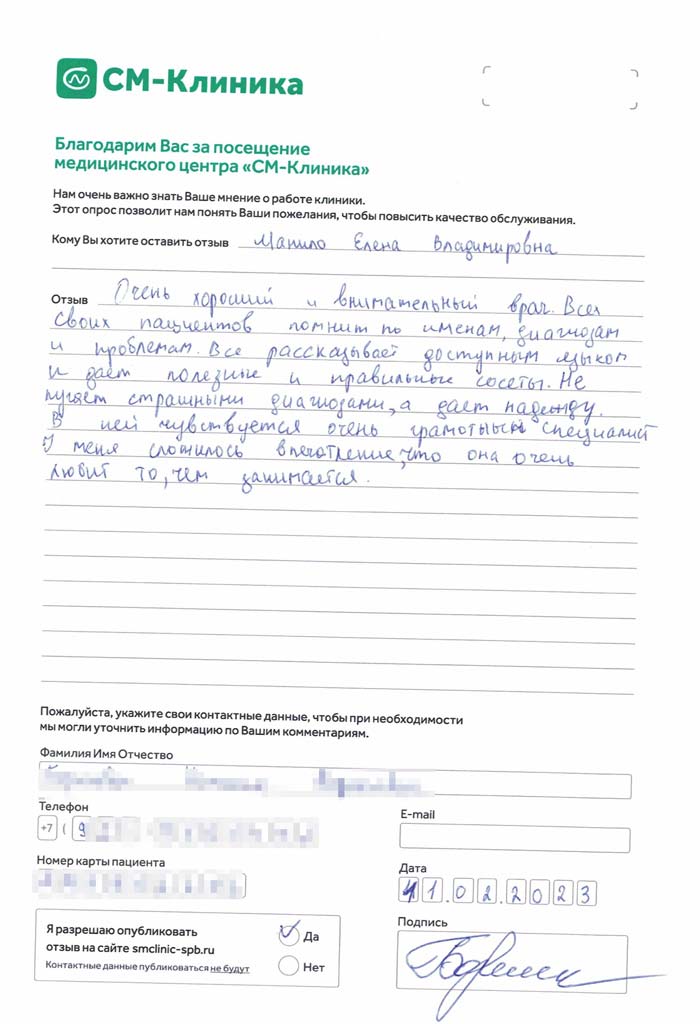 СМ-Клиника
Благодарим Вас за посещение
медицинского центра «СМ-Клиника»
Нам очень важно знать Ваше мнение о работе клиники.
Этот опрос позволит нам понять Ваши пожелания, чтобы повысить качество обслуживания.
Кому Вы хотите оставить отзыв Манило Елена Владимировна
Отзыв Очень хороший и внимательный врач. Всех
своих пациентов помнит по именам, диагнозам
и проблемам. Все рассказывает доступным языком
и дает полезные и правильные советы. Не
пугает страшными диагнозами, а дает надежду.
В ней чувствуется очень грамотный специалист
У меня сложилось впечатление, что она очень
любит то, чем занимается.
Пожалуйста, укажите свои контактные данные, чтобы при необходимости
мы могли уточнить информацию по Вашим комментариям.
Фамилия Имя Отчество
Телефон
+7 ( 9
E-mail
Номер карты пациента
Дата
11.02.2023
Я разрешаю опубликовать
отзыв на сайте smclinic-spb.ru
Контактные данные публиковаться не будут
Да
Нет
Подпись